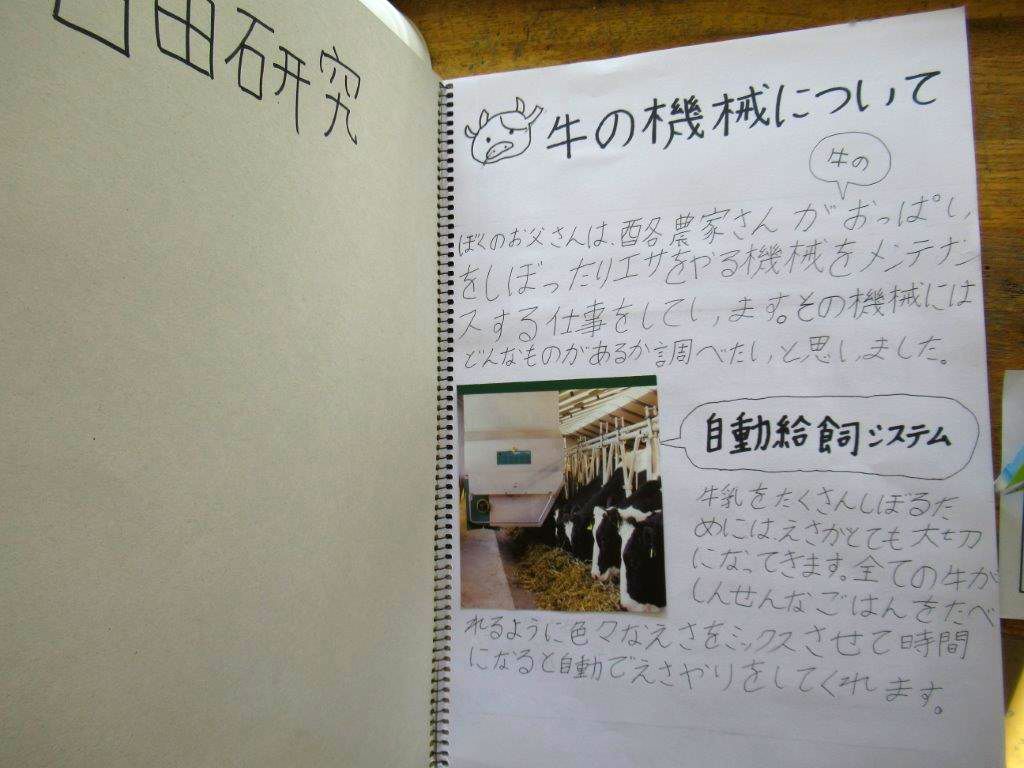 自由研究
牛の機械について
牛の
ぼくのお父さんは、酪農家さんがおっぱい
をしぼったりエサをやる機械をメンテナン
スする仕事をしています。その機械には
どんなものがあるか調べたいと思いました。
自動給飼システム
牛乳をたくさんしぼるた
めにはえさがとても大切
になってきます。全ての牛が
しんせんなごはんをたべ
れるように色々なえさをミックスさせて時間
になると自動でえさやりをしてくれます。